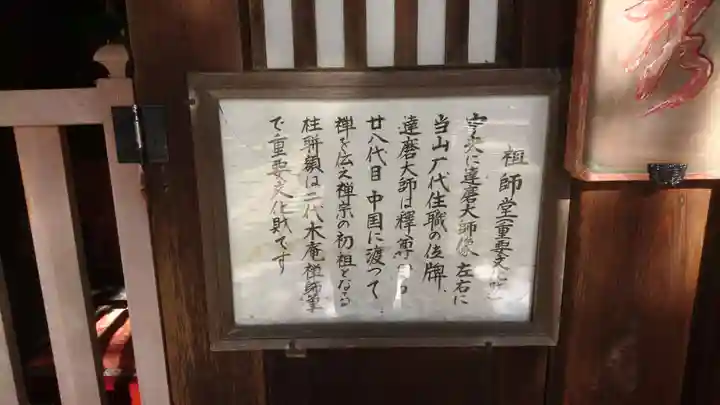 祖師堂(重要文化財)
中央に達磨大師像 左右に
当山歴代住職の位牌
達磨大師は釋尊より
廿八代目 中国に渡って
禅を伝え禅宗の初祖となる
柱聯額は二代木庵禅師筆
で重要文化財です